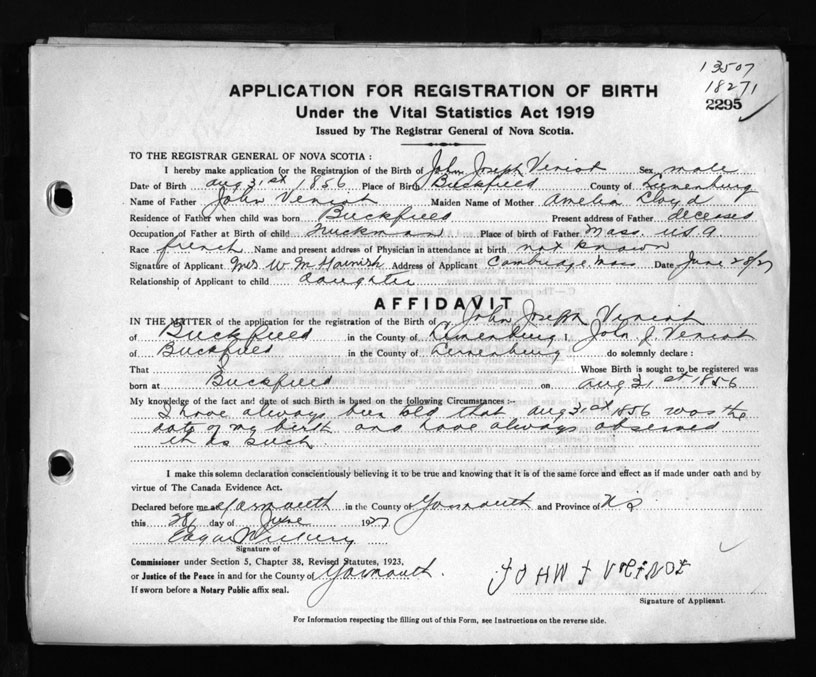 13507
18271
2295
APPLICATION FOR REGISTRATION OF BIRTH
Under the Vital Statistics Act 1919
Issued by The Registrar General of Nova Scotia.
TO THE REGISTRAR GENERAL OF NOVA SCOTIA :
I hereby make application for the Registration of the Birth of John Joseph Veniot Sex male
Date of Birth Aug 31st 1856 Place of Birth Buckfield County of Lunenburg
Name of Father John Veniot Maiden Name of Mother Amelia Lloyd
Residence of Father when child was born Buckfield Present address of Father deceased
Occupation of Father at Birth of child Truckman Place of Birth of Father Mass. U S A
Race french Name and present address of Physician in attendance at birth not known
Signature of Applicant Mrs W. M. Address of Applicant Cambridge Mass Date June 28/27
Relationship of Applicant to child daughter
AFFIDAVIT
IN THE MATTER of the application for the registration of the Birth of John Joseph Veniot
of Buckfield in the County of Lunenburg I, John J. Veniot
of Buckfield in the County of Lunenburg do solemnly declare :
That Whose Birth is sought to be registered was
born at Buckfield on Aug 31st 1856
My knowledge of the fact and date of such Birth is based on the following Circumstances :-
I have always been told that Aug 31st 1856 was the
date of my birth and have always observed
it as such
I make this solemn declaration conscientiously believing it to be true and knowing that it is of the same force and effect as if made under oath and by
virtue of The Canada Evidence Act.
Declared before me at Yarmouth in the County of Yarmouth and Province of N S
this 28 day of June 1927
Edgar
Signature of
Commissioner under Section 5, Chapter 38, Revised Statutes, 1923,
or Justice of the Peace in and for the County of Yarmouth.
If sworn before a Notary Public affix seal.
JOHN J VEINOT
Signature of Applicant.
For Information respecting the filling out of this Form, see Instructions on the reverse side.